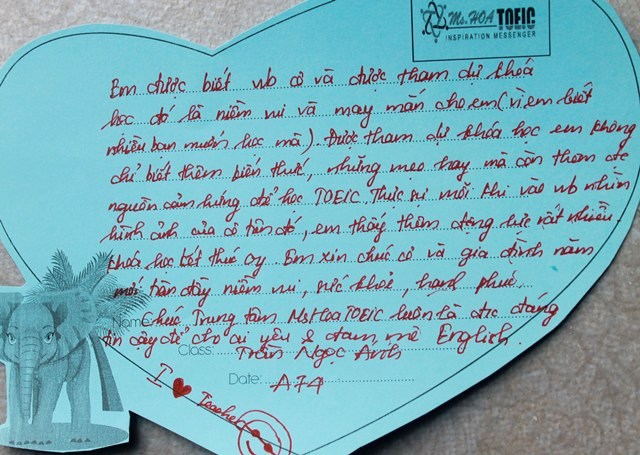 Ms. HOA TOEIC
INSPIRATION MESSENGER
Em được biết wb cô và được tham dự khóa
học đó là niềm vui và may mắn cho em (vì em biết
nhiều bạn muốn học mà). Được tham dự khóa học em không
chỉ biết thêm kiến thức, những mẹo hay mà còn tham
nguồn cảm hứng để học TOEIC. Thực sự mỗi khi vào wb nhìn
hình ảnh của cô trên đó, em thấy thêm động lực rất nhiều.
Khoá học kết thúc rùi. Em xin chúc cô và gia đình năm
mới tràn đầy niềm vui, sức khoẻ, hạnh phúc.
Name:
Chúc Trung tâm MsHoaTOEIC luôn là đáng
tin cậy để cho ai yêu & đam mê English.
Class: Trần Ngọc Anh
Date: A74
I ♥ Teacher